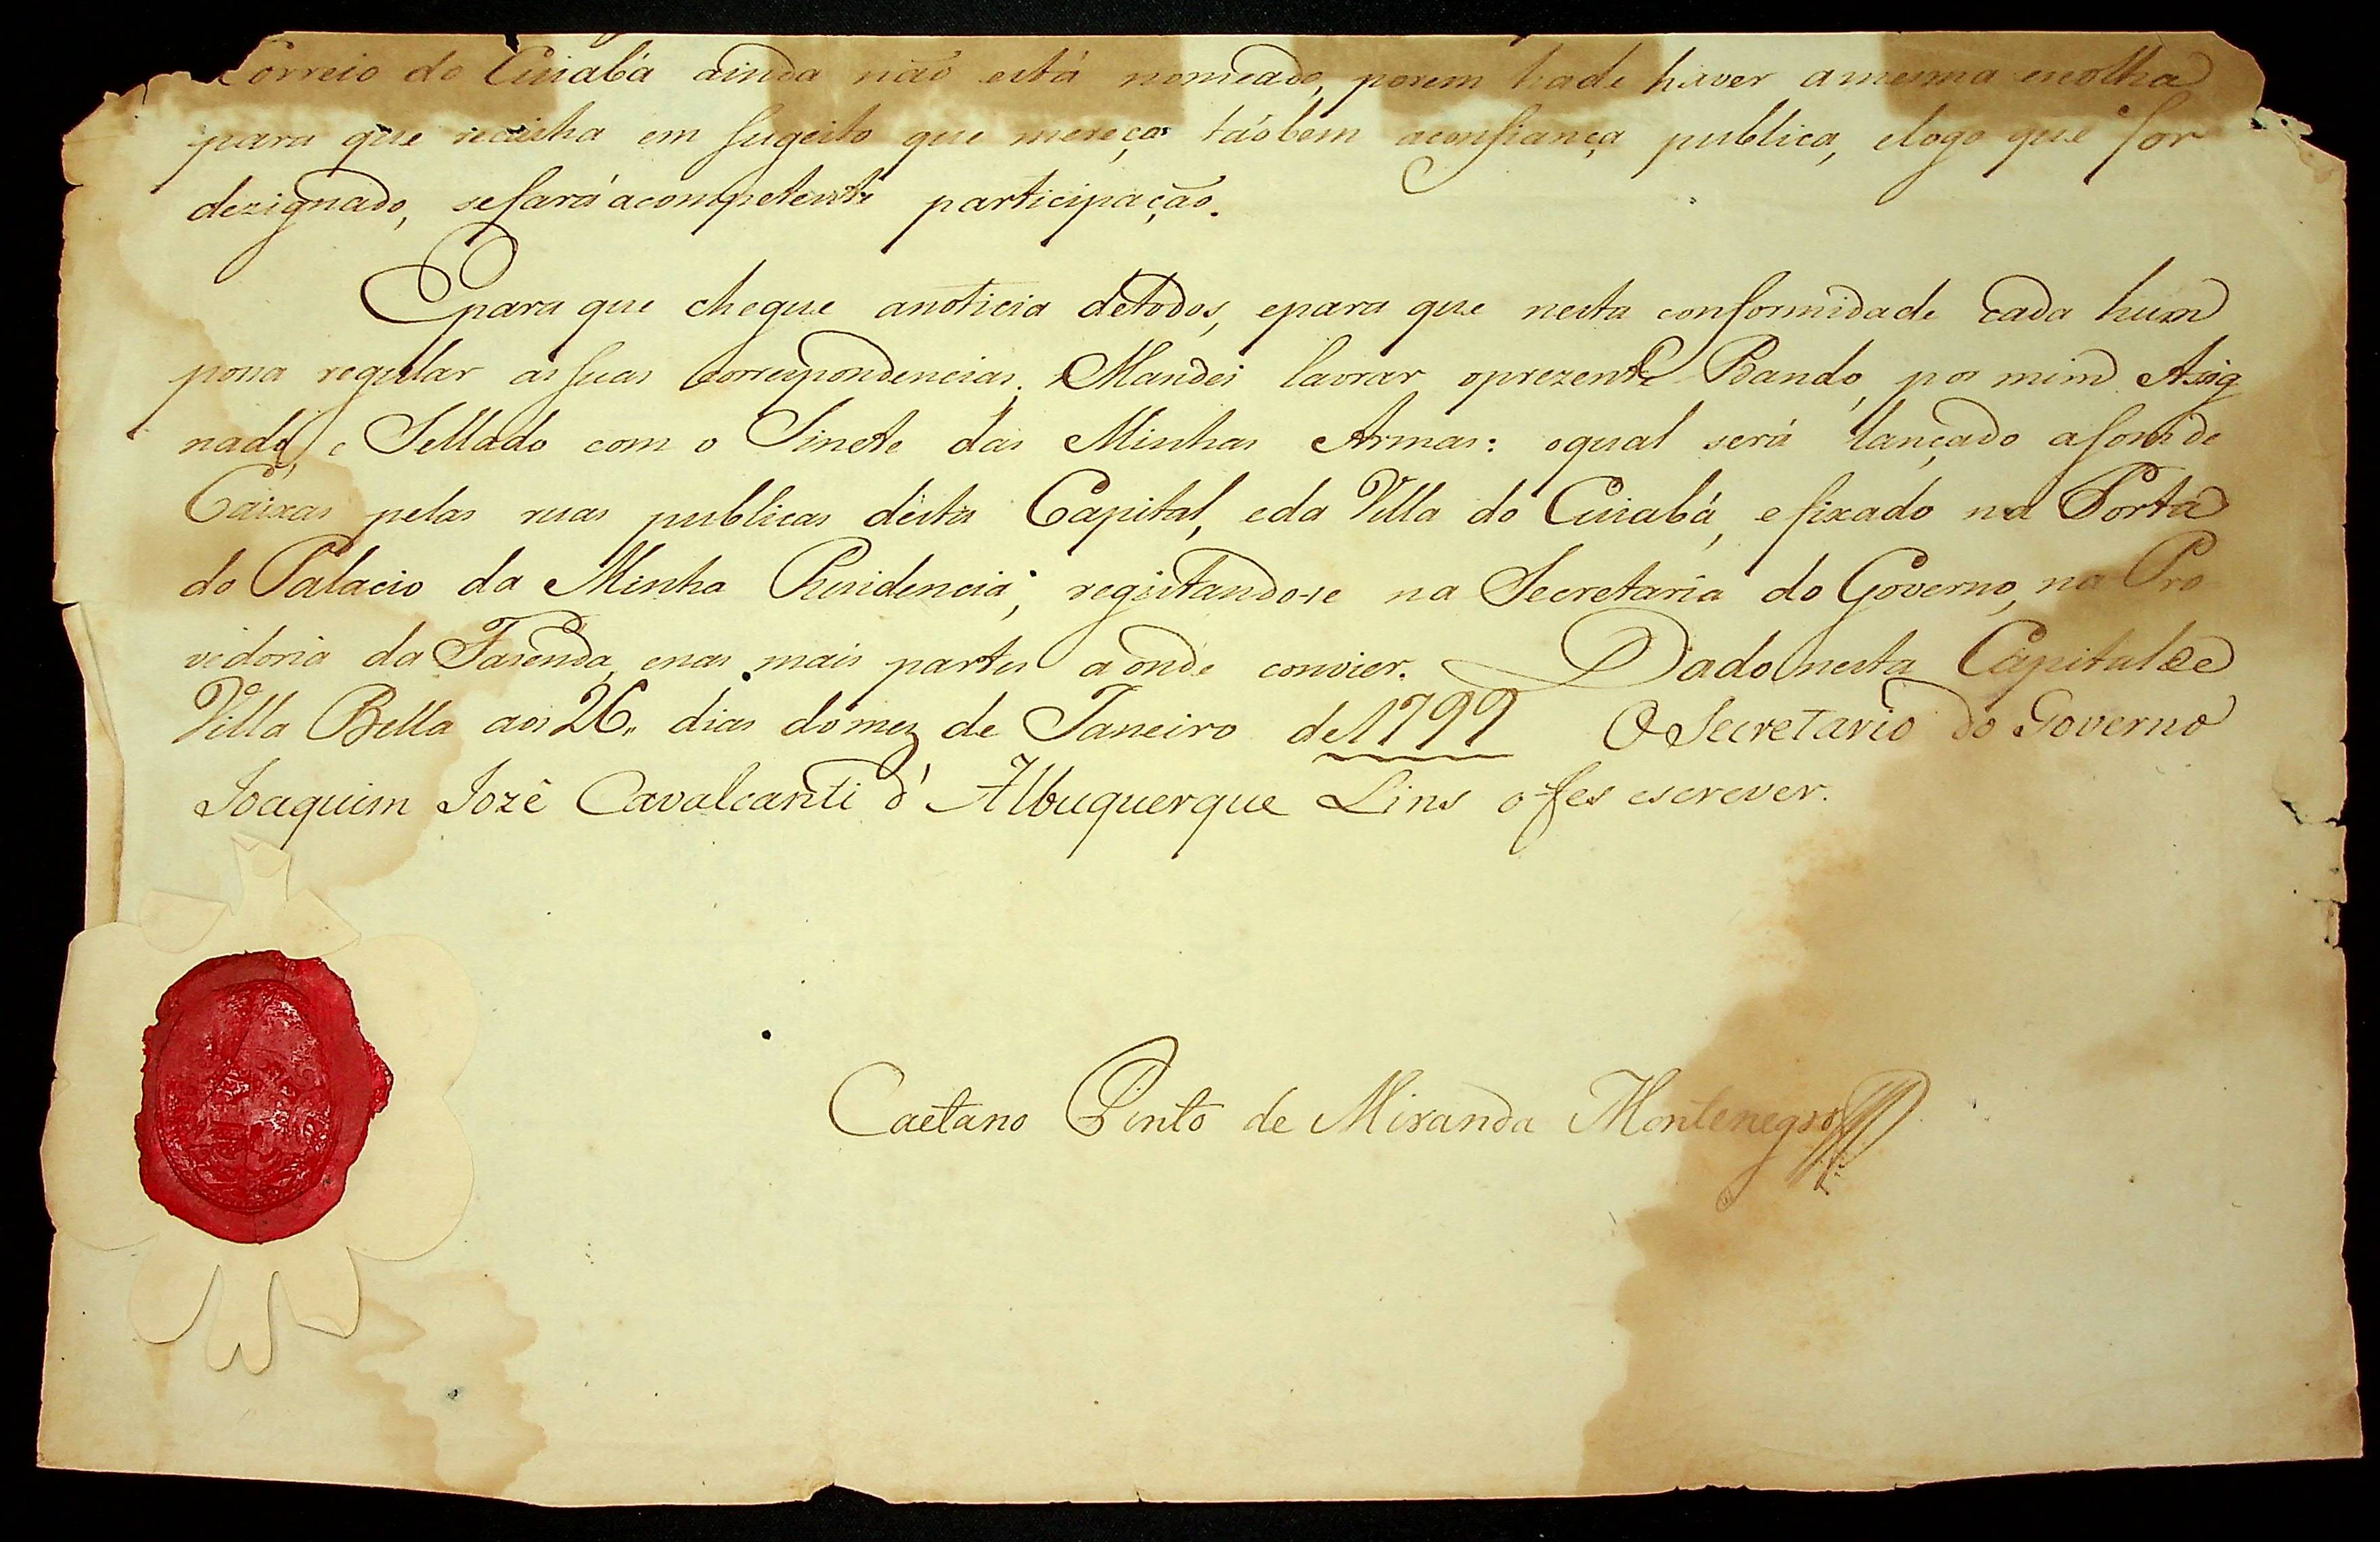 Correio do Cuiabá ainda não está nomeado, porem hade haver amesma escolha
para que recaiha em sugeito que mereça taõbem aconfiança publica, elogo que for
dezignado, sefará acompetente participação.
Epara que chegue anoticia detodos, epara que nesta conformidade cada hum
possa regular as suas Correspondencias. Mandei lavrar oprezente Bando, por mim Assig
nado, e Sellado com o Sinete das Minhas Armas: oqual será lançado asom de
Caixas pelas ruas publicas desta Capital, eda Villa do Cuiabá, e fixado na Porta
do Palacio da Minha Rezidencia; registando-se na Secretaria do Governo, na Pro
vedoria da Fasenda, enas mais partes aonde convier. Dado nesta Capital de
Villa Bella aos 26. dias domez de Janeiro de 1799 O Secretario do Governo
Joaquim Jozê Cavalcanti d'Albuquerque Lins o fes escrever.
Caetano Pinto de Miranda Montenegro